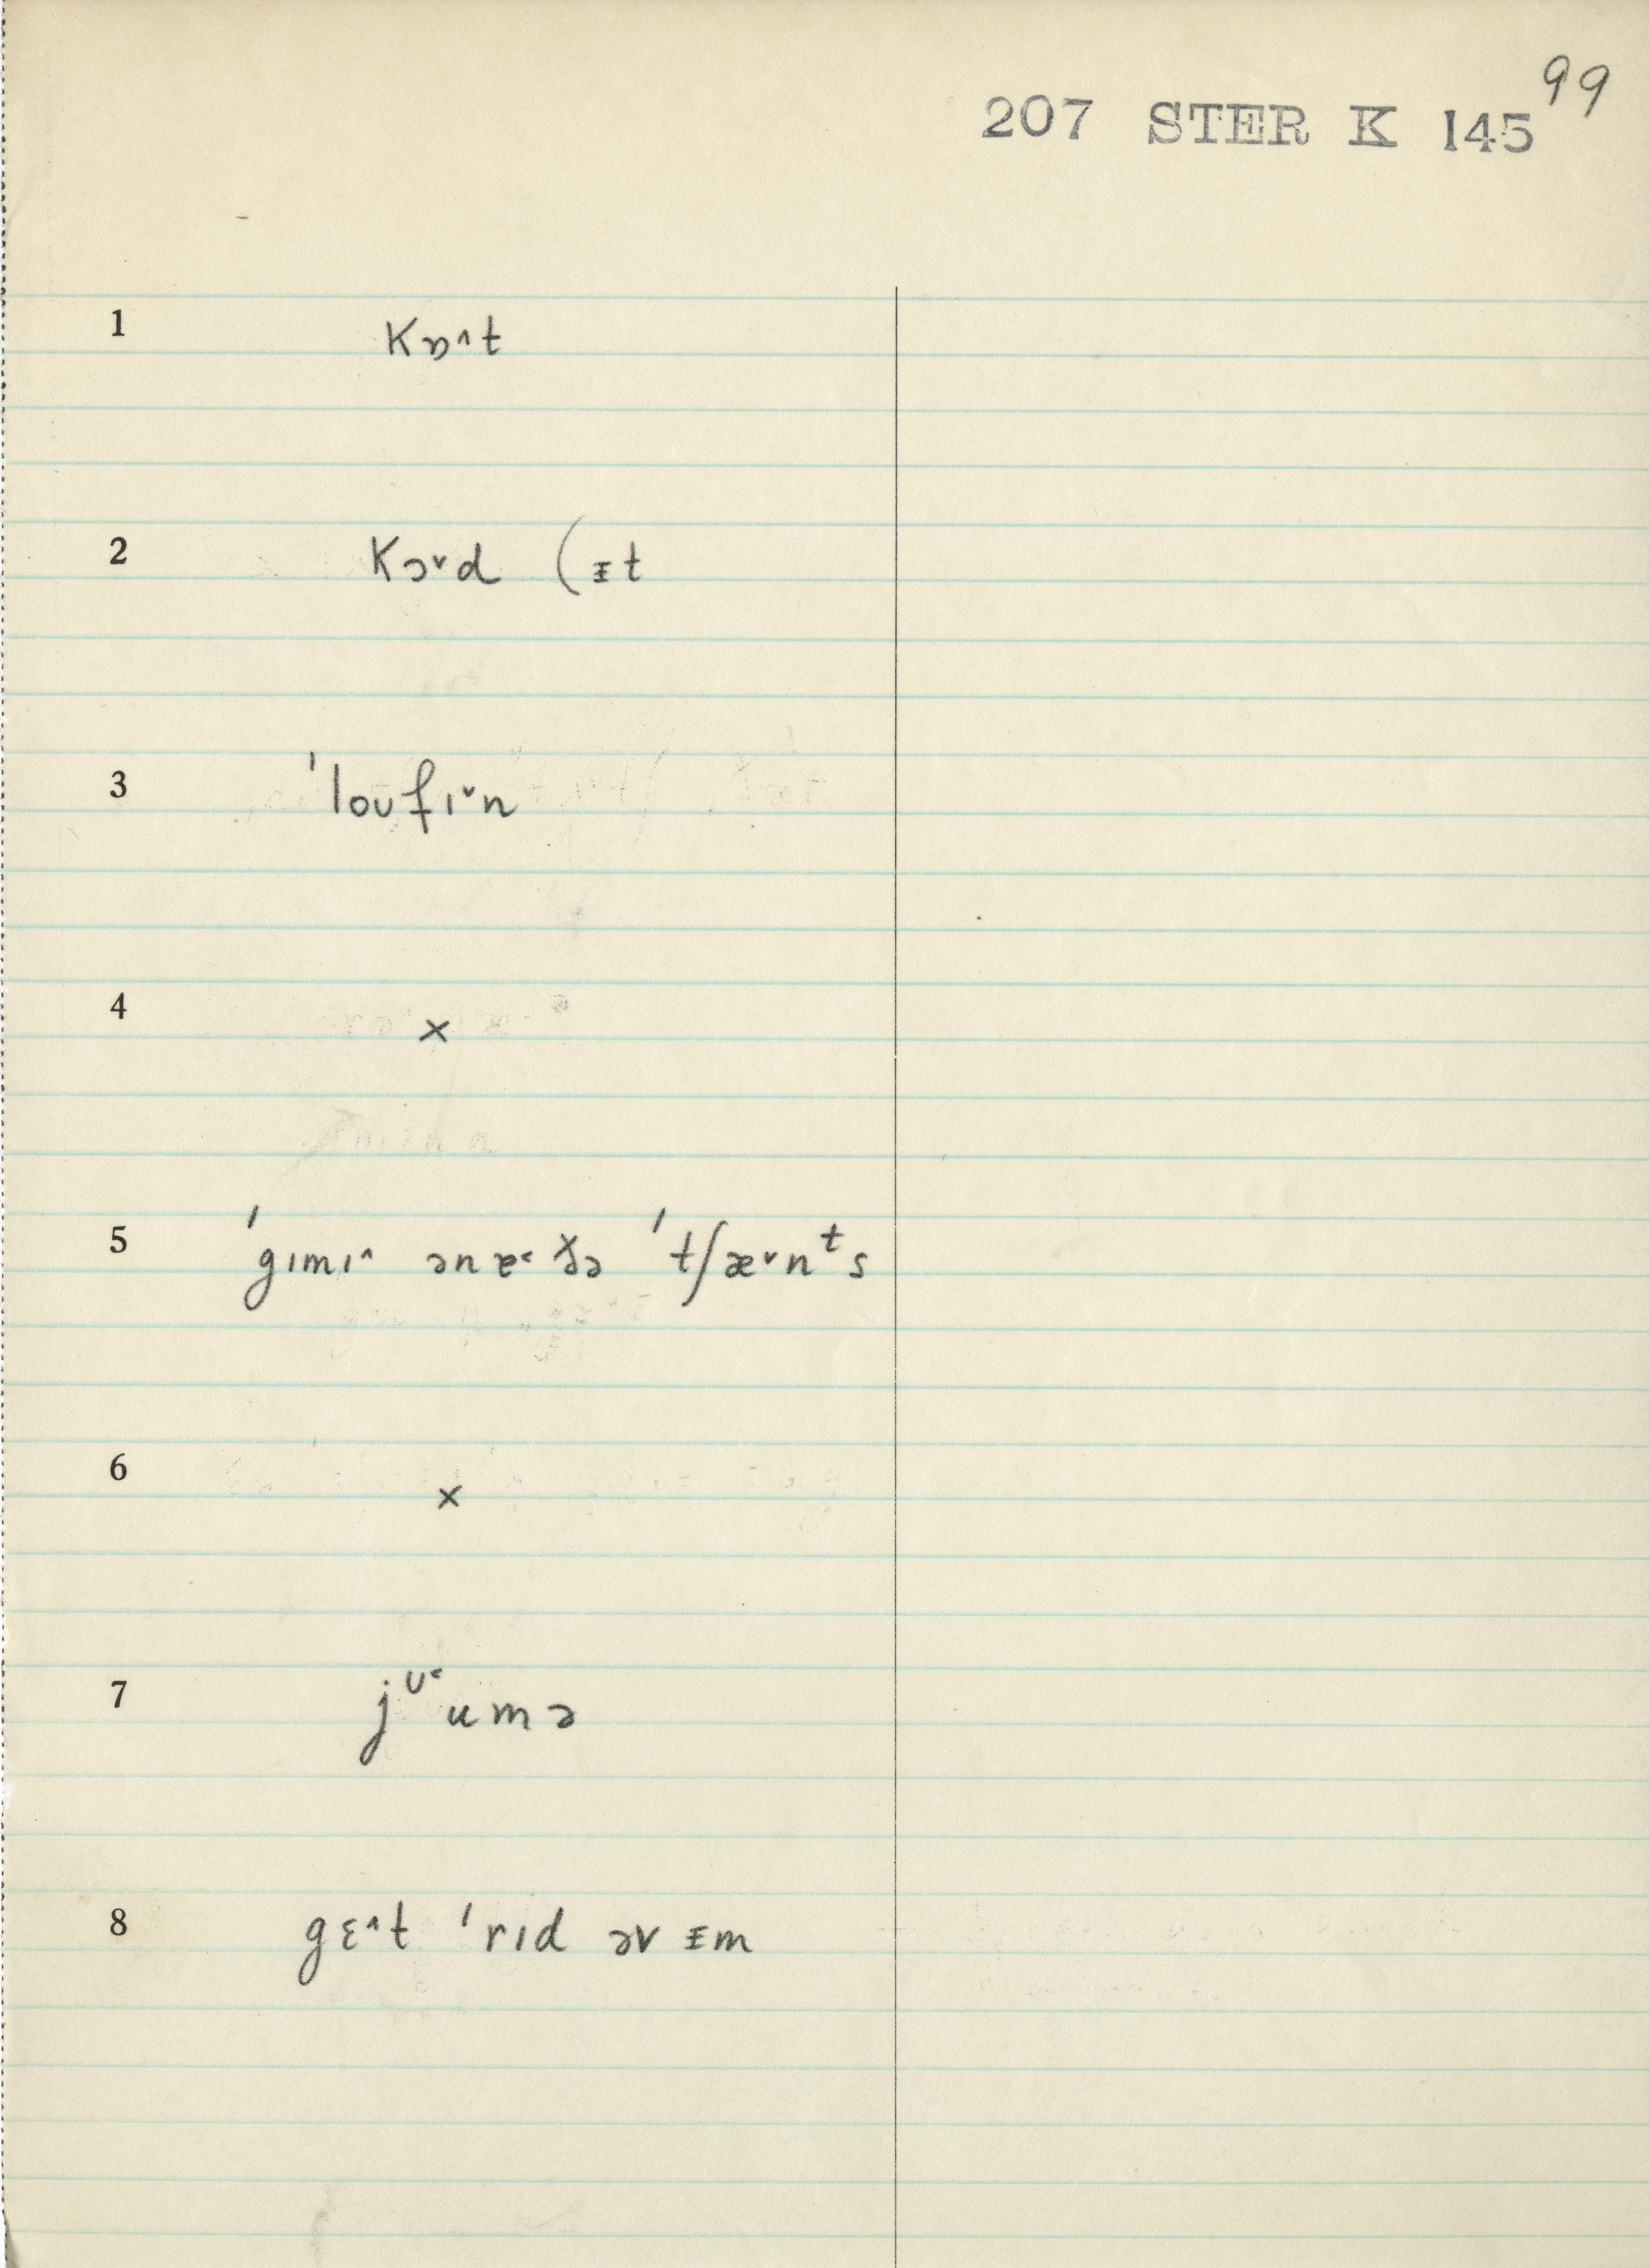 99
207 STER K 145
1 kɒ˄t
2 kɔ˅d (ᵻt
3 ˈloʊfɪ˅n
4 ×
5 ˈgɪmɪ˄ ənɐ˂ ðə ˈtʃæ˅nᵗs
6 ×
7 jᶷ˂umə
8 gɛ˄t ˈrɪd əv ᵻm